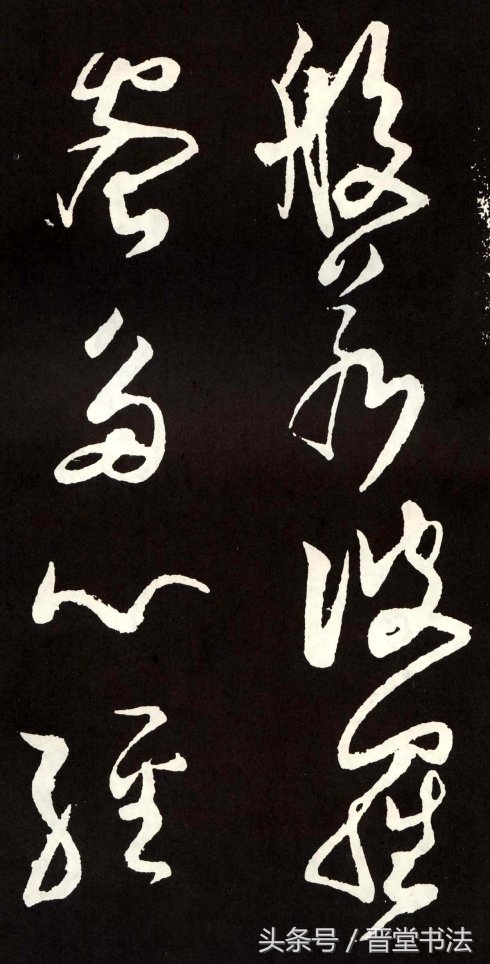 般若波羅
蜜多心經
头条号 / 晋堂书法